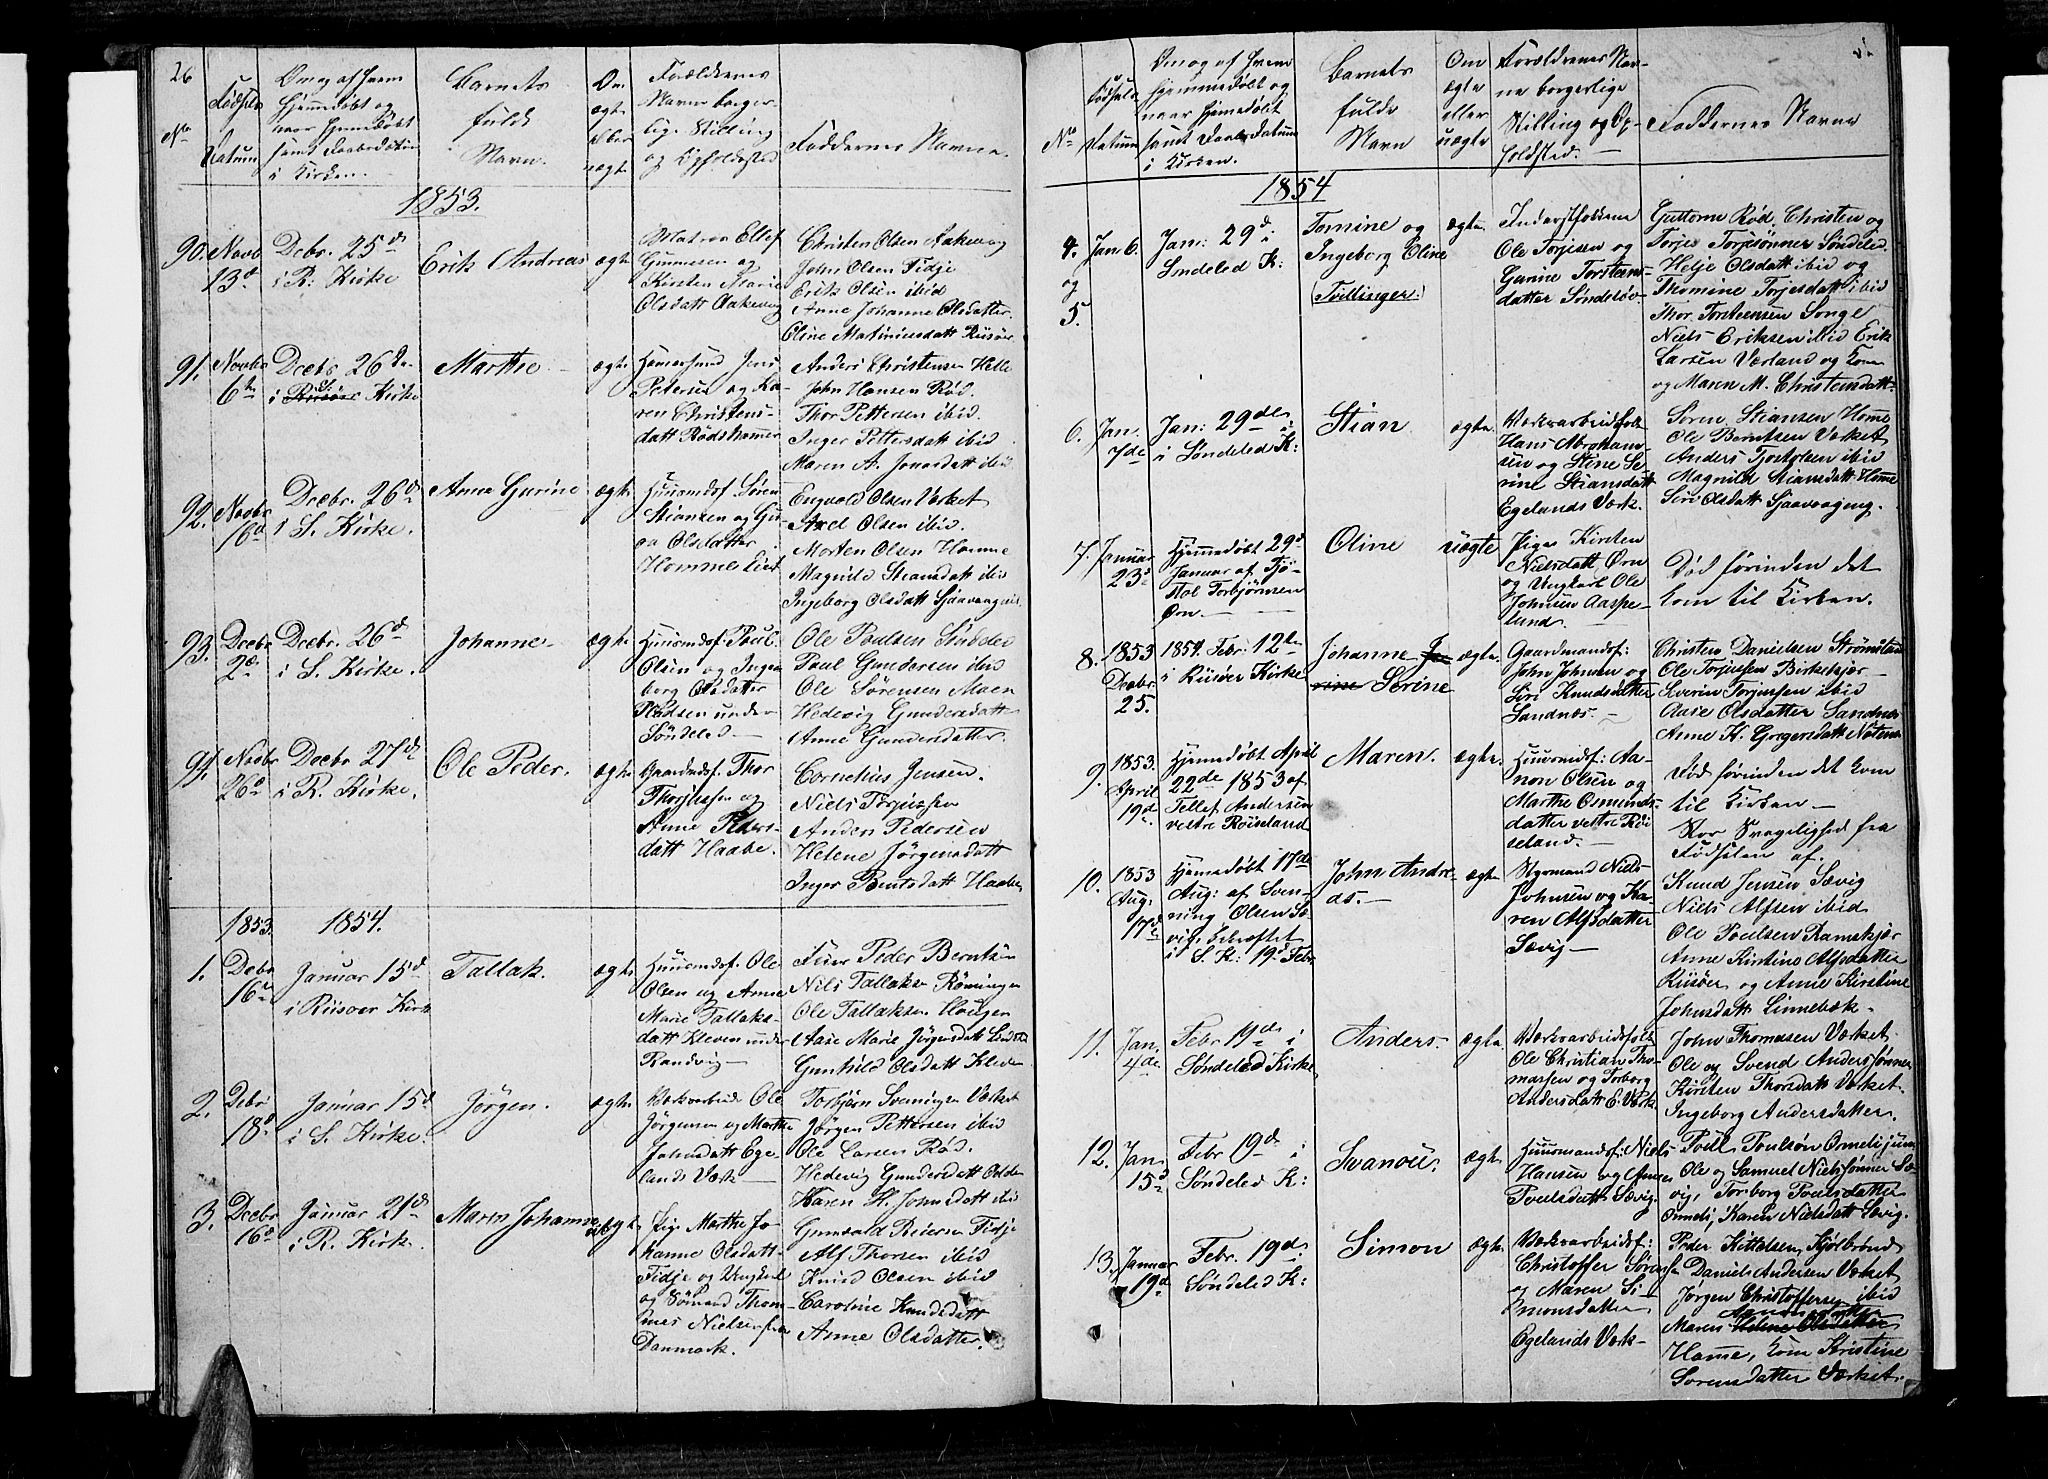 26
No
Fødsels
Datum
Om og af hvem
hjemmedøbt og
naar hjemmedøbt
samt Daabsdatum
i Kirken.
Barnets
fulde
Navn.
Om
ægte
eller
uægte
Forældrenes
Navne borger-
lige Stilling
og Opholdssted
Faddernes Navne.
1853.
90. Novb. 13d
Decbr. 25d
i R. Kirke
Erik Andreas
ægte
Matros Ellef
Gunnesen og
Kirsten Marie
Olsdatt Aakevig
Christen Olsen Aakevig
John Olsen Fidje
Erik Olsen ibid
Anne Johanne Olsdatter
Oline Martiniusdatt Riisøer
91. Novbr 6te
Decbr 26de
i S. Kirke
Marthe
ægte
Jens
Petersen og Ka-
ren Christens-
datt Rødshammer
Anders Christensen Helle
John Hansen Rød.
Thor Pettersen ibid.
Inger Pettersdatt ibid
Maren A. Jonasdatt ibid
92. Novbr 16d
Decbr. 26d
i S. Kirke.
Anne Gurine
ægte
Huusmdsf. Søren
Stiansen og Gu-
ro Olsdatter
Homme Eied
Engvald Olsen Værket
Axel Olsen ibid.
Morten Olsen Homme
Magnild Stiansdatt ibid
Ingeborg Olsdatt Sjaavaag
93. Decbr 2de
Decbr. 26d
i S. Kirke.
Johanne
ægte
Huusmdsf. Poul
Olsen og Inge-
borg Olsdatter
Pladsen under
Søndeled
Ole Poulsen Søndeled
Poul Gundersen ibid
Ole Sørensen Moen
Hedevig Gundersdatt
Anne Gundersdatter.
94. Novbr 26d
Decbr 27d
i R. Kirke.
Ole Peder.
ægte
Gaardmdsf. Thor
Thorjussen og
Anne Peders-
datt Haabe.
Cornelius Jensen.
Niels Torjussen
Anders Pedersen
Helene Jørgensdatt
Inger Berntsdatt Haabe
1853. 1854.
1. Debr 16de
Januar 15d
i Riisøer Kirke
Tallak.
ægte
Huusmdsf. Ole
Olsen og Anne
Marie Tallaks-
datt Kleven under
Randvig
Peder Berntsen
Nils Tallaksen Rønningen
Ole Tallaksen Hougen
Aase Marie Jørgensdatt
Gunhild Olsdatt Kleven
2. Debr 18d
Januar 15d
i S. Kirke.
Jørgen.
ægte
Værkarbeid. Ole
Jørgensen og Marthe
Johnsdatt Ege-
lands Værk
Torbjørn Sveningsen Værket
Jørgen Pettersen ibid
Ole Larsen Rød.
Hedevig Gundersdatt
Karen H. Johnsdatt ibid
3. Decbr 16d
Januar 21d
i R. Kirke.
Maren Johanne
uægte
Pige Marthe Jo-
hanne Olsdatt
Fidje og Ungkarl
og Sømand Thom-
mas Nielsen fra
Danmark.
Gunvald Reiersen Fidje
Alf Thorsen ibid
Knud Olsen ibid
Caroline Knudsdatt
Anne Olsdatter.
No
Fødsels
Datum
Om og af hvem
hjemmedøbt og
naar hjemmedøbt
samt Daabsdatum
i Kirken.
Barnets
fulde
Navn
Om
ægte
eller
uægte
Forældrenes Nav-
ne borgerlige
Stilling og Op-
holdsted.
Faddernes Navne
1854
4. og 5.
Jan 6.
Jan: 29d i
Søndeled K:
Tomine og
Ingeborg Oline
(Tvillinger.)
ægte
Inderstfolkene
Ole Torjesen og
Gurine Torstens-
datter Søndeled
Guttorm Rød, Christen og
Torjes Torjesønner Søndeled
Helje Olsdatt ibid og
Thomine Torjesdatt ibid
Thor Torsteensen Songe
Niels Eriksen ibid Erik
Larsen Værland og Kone
og Maren M. Christensdatt.
6. Jan. 7de
Jan: 29de
i Søndeled K:
Stian
ægte
Værkarbeidsfolk
Hans Abraham-
sen og Stine Se-
rine Stiansdatt
Egelands Værk.
Søren Stiansen Homme
Ole Berntsen Værket
Anders Tjostolsen ibid
Magnild Stiansdatt Homme
Siri Olsdatt Sjaavaageng.
7. Januar 23d
Hjemmedøbt 29d
Januar af Tjø-
stol Torbjørnsen
Ørn.
Oline
uægte
Pige Kirsten
Nielsdatt, Ørn
og Ungkarl Ole
Johnsen Aaspe-
lund.
Død førinden det
kom til Kirken.
8. 1853 Decbr. 25.
1854. Febr. 12te
i Riisøer Kirke
Johanne Jo-
rine Serine
ægte
Gaardmandsf:
John Johnsen og
Siri Knudsdatter
Sandnæs.
Christen Danielsen Strømstan
Ole Torjussen Birkekjær
Severin Torjussen ibid
Aase Olsdatter Sandnæs
Anne K. Gregersdatt
9. 1853. April 19d
Hjemmedøbt April
22de 1853 af
Tellef Andersen
vestre Røiseland
Maren.
ægte.
Huusmdsf: Aa-
non Olsen og
Marthe Osmunds-
datter vestre Røi-
seland.
Død førinden det kom
til Kirken
Stor Svagelighed fra
Fødselen af.
10. 1853 Aug. 17d
Hjemmedøbt 17de
Aug: af Sven-
ning Olsen Sæ-
vig, bekræftet
i S. K: 19d Febr
John Andre-
as.
ægte
Styrmand Niels
Johnsen og Ka-
ren Alfsdatter
Sævig
Knud Jensen Sævig
Niels Alfsen ibid
Ole Poulsen Ramskjær
Anne Kirstine Alfsdatter
Riisøer og Anne Kirstine
Johnsdatt Linnebæk
11. Jan. 4de
Febr 19d i
Søndeled Kirke
Anders.
ægte
Værkarbeidsfolk
Ole Christian Tho-
massen og Torborg
Andersdatt E. Værk
John Thomassen Værket
Ole og Svend Anderssønner
Kirsten Thorsdatt Værket
Ingeborg Andersdatter.
12. Jan 15d
Febr 19d i
Søndeled K:
Svanou.
ægte
Huusmandsf: Niels
Hansen og Anne
Poulsdatt Sævig
Poul Poulsøn Ormelijum
Ole og Samuel Nielssønner Sæ-
vig, Torborg Poulsdatter
Ormeli, Karen Nielsdatt Sævig.
13. Januar 19d
Febr. 19d i
Søndeled K:
Simon
ægte
Værkarbeidsf:
Christoffer Sørensen
og Maren Si-
monsdatter
Egelands Værk
Peder Kittelsen, Kjørbrønd
Daniel Andersen Værket
Jørgen Christoffersen ibid
Maren Helene Olsdatter
Homme, Kone Kristine
Sørensdatter Værket.